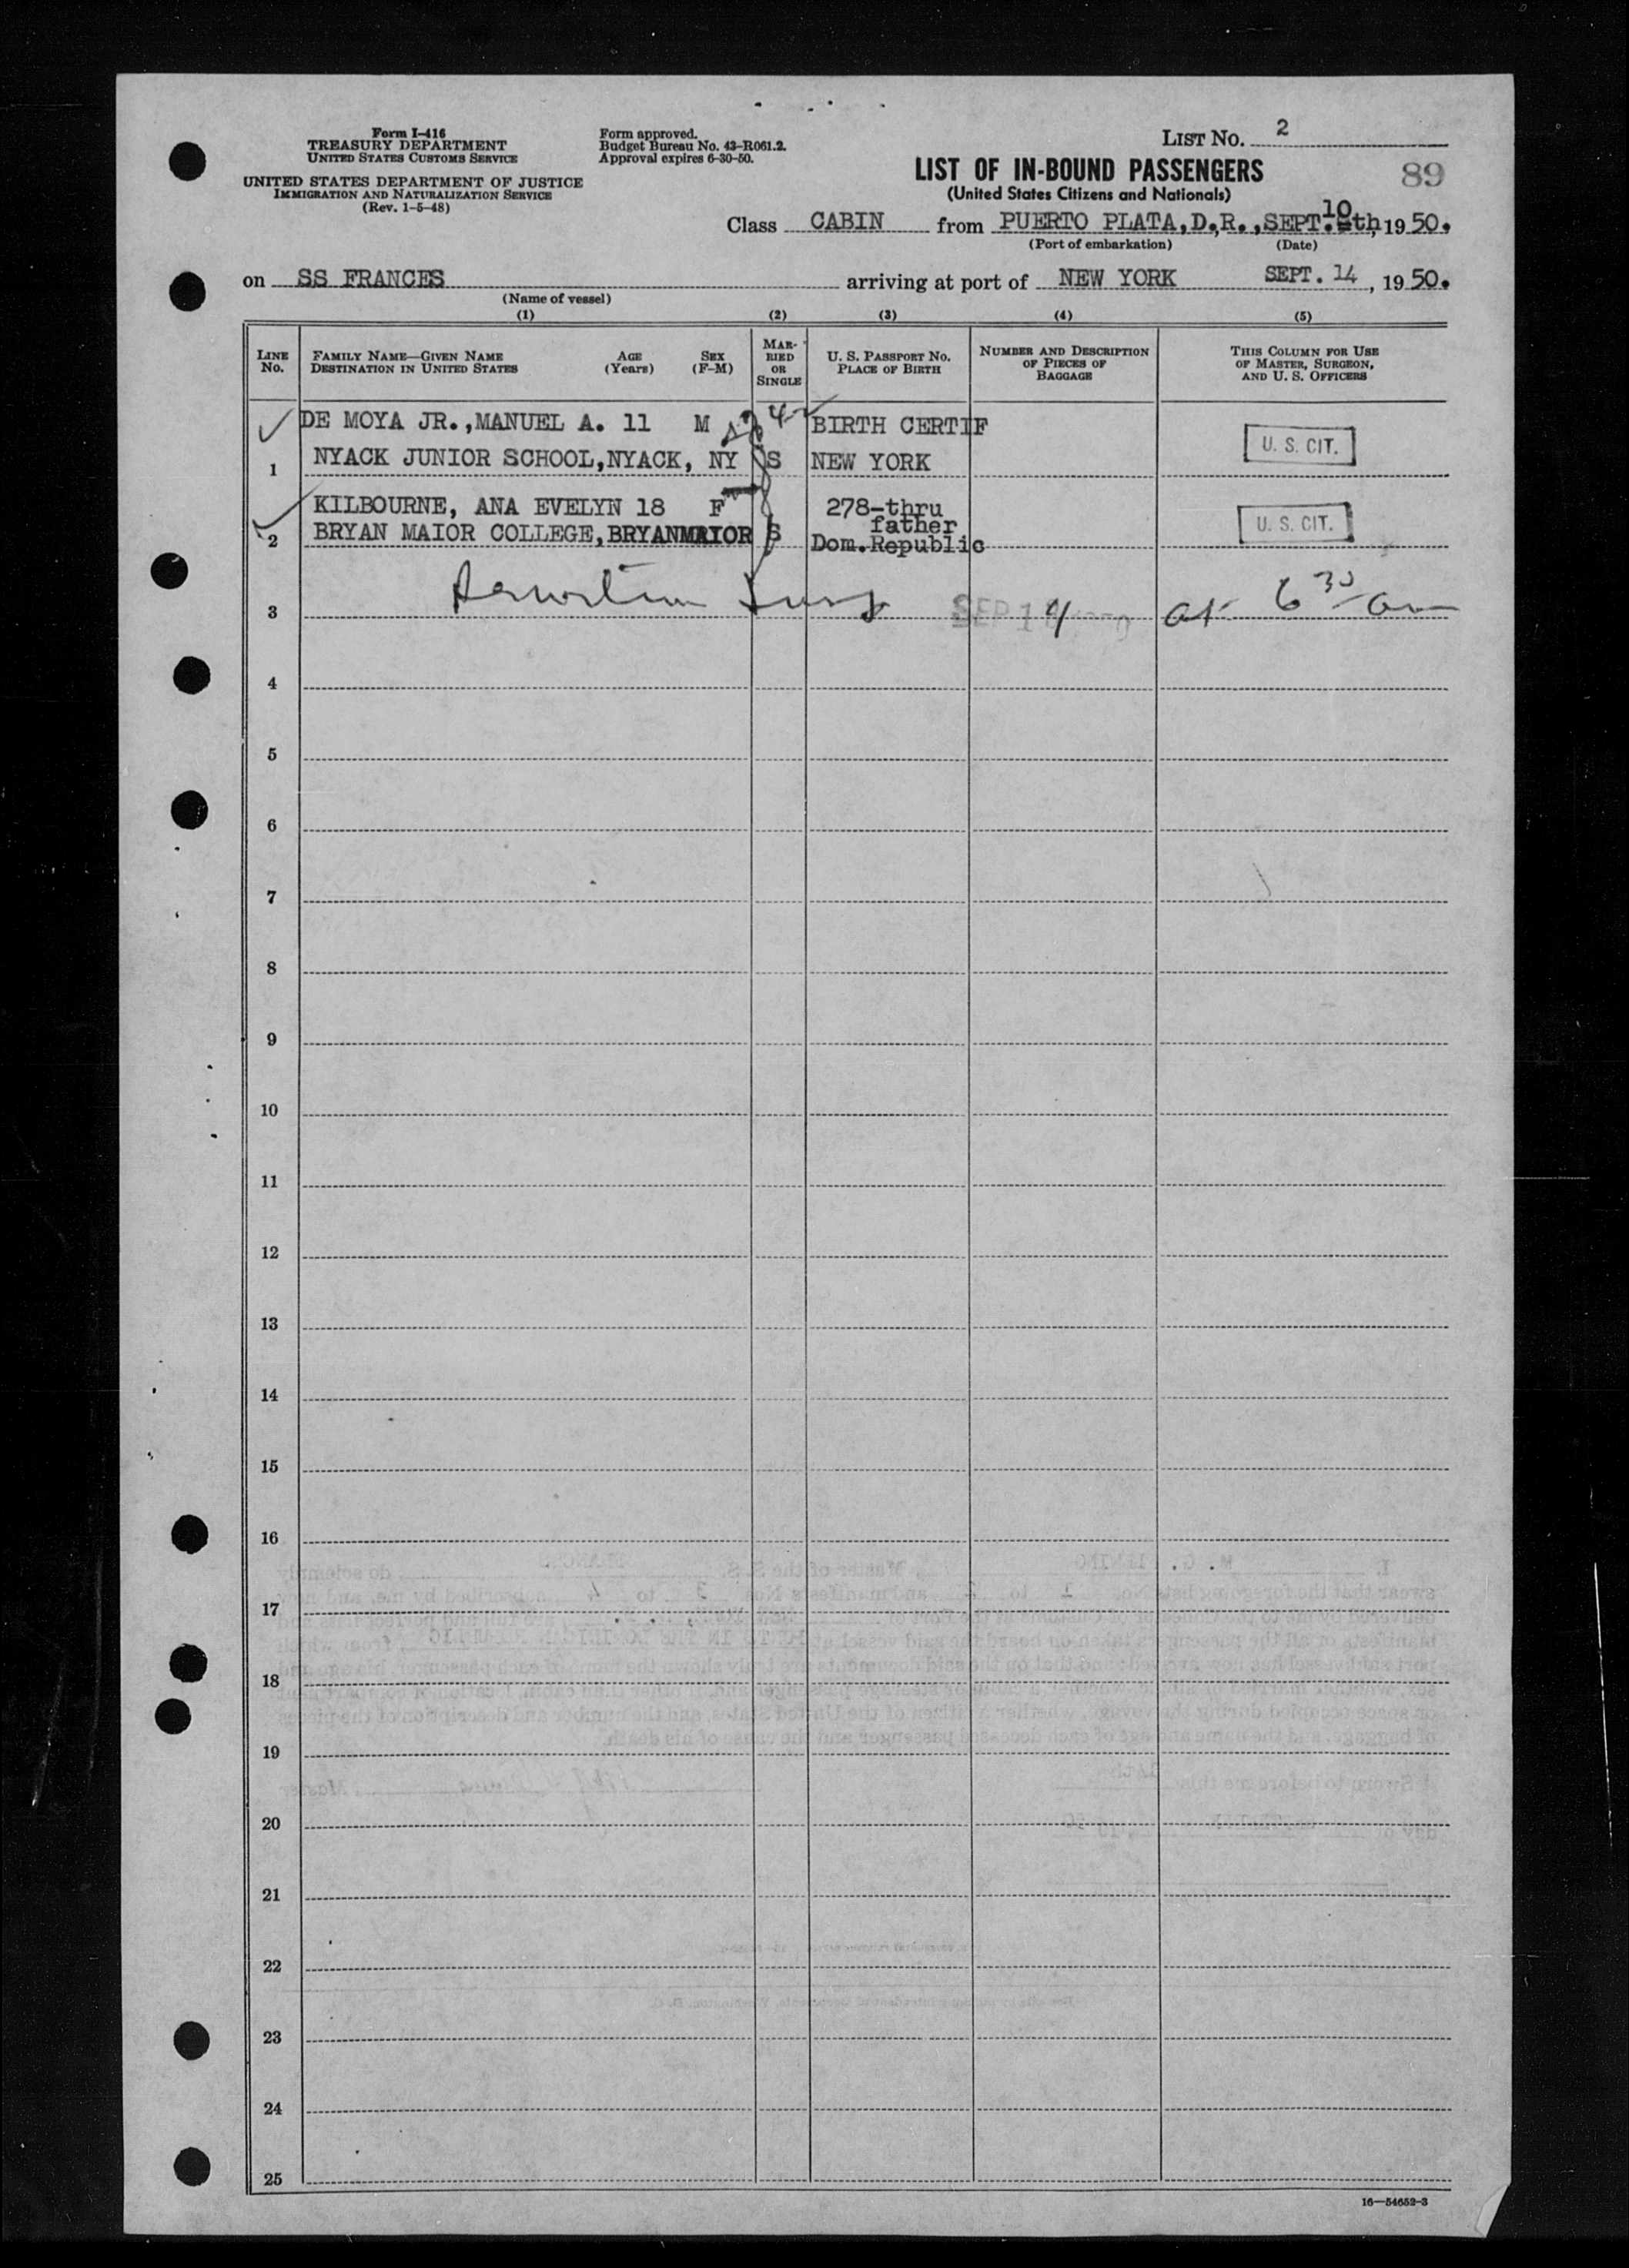 Form I-416
TREASURY DEPARTMENT
UNITED STATES CUSTOMS SERVICE
UNITED STATES DEPARTMENT OF JUSTICE
IMMIGRATION AND NATURALIZATION SERVICE
(Rev. 1-5-48)
Form approved.
Budget Bureau No. 43-R061.2.
Approval expires 6-30-50.
LIST No. 2
LIST OF IN-BOUND PASSENGERS
89
(United States Citizens and Nationals)
Class CABIN from PUERTO PLATA, D.R., SEPT. 10th, 1950.
(Port of embarkation) (Date)
on SS FRANCES arriving at port of NEW YORK SEPT. 14, 1950.
(Name of vessel)
(1) (2) (3) (4) (5)
LINE No. FAMILY NAME—GIVEN NAME DESTINATION IN UNITED STATES AGE (Years) SEX (F-M) MARRIED OR SINGLE U. S. PASSPORT No. PLACE OF BIRTH NUMBER AND DESCRIPTION OF PIECES OF BAGGAGE THIS COLUMN FOR USE OF MASTER, SURGEON, AND U. S. OFFICERS
DE MOYA JR., MANUEL A. 11 M BIRTH CERTIF U. S. CIT.
1 NYACK JUNIOR SCHOOL, NYACK, NY S NEW YORK
KILBOURNE, ANA EVELYN 18 F 278-thru father U. S. CIT.
2 BRYAN MAIOR COLLEGE, BRYANMAIOR S Dom. Republic
3 SEP 14 at 6 30 am
4
5
6
7
8
9
10
11
12
13
14
15
16
17
18
19
20
21
22
23
24
25
16—54652-3